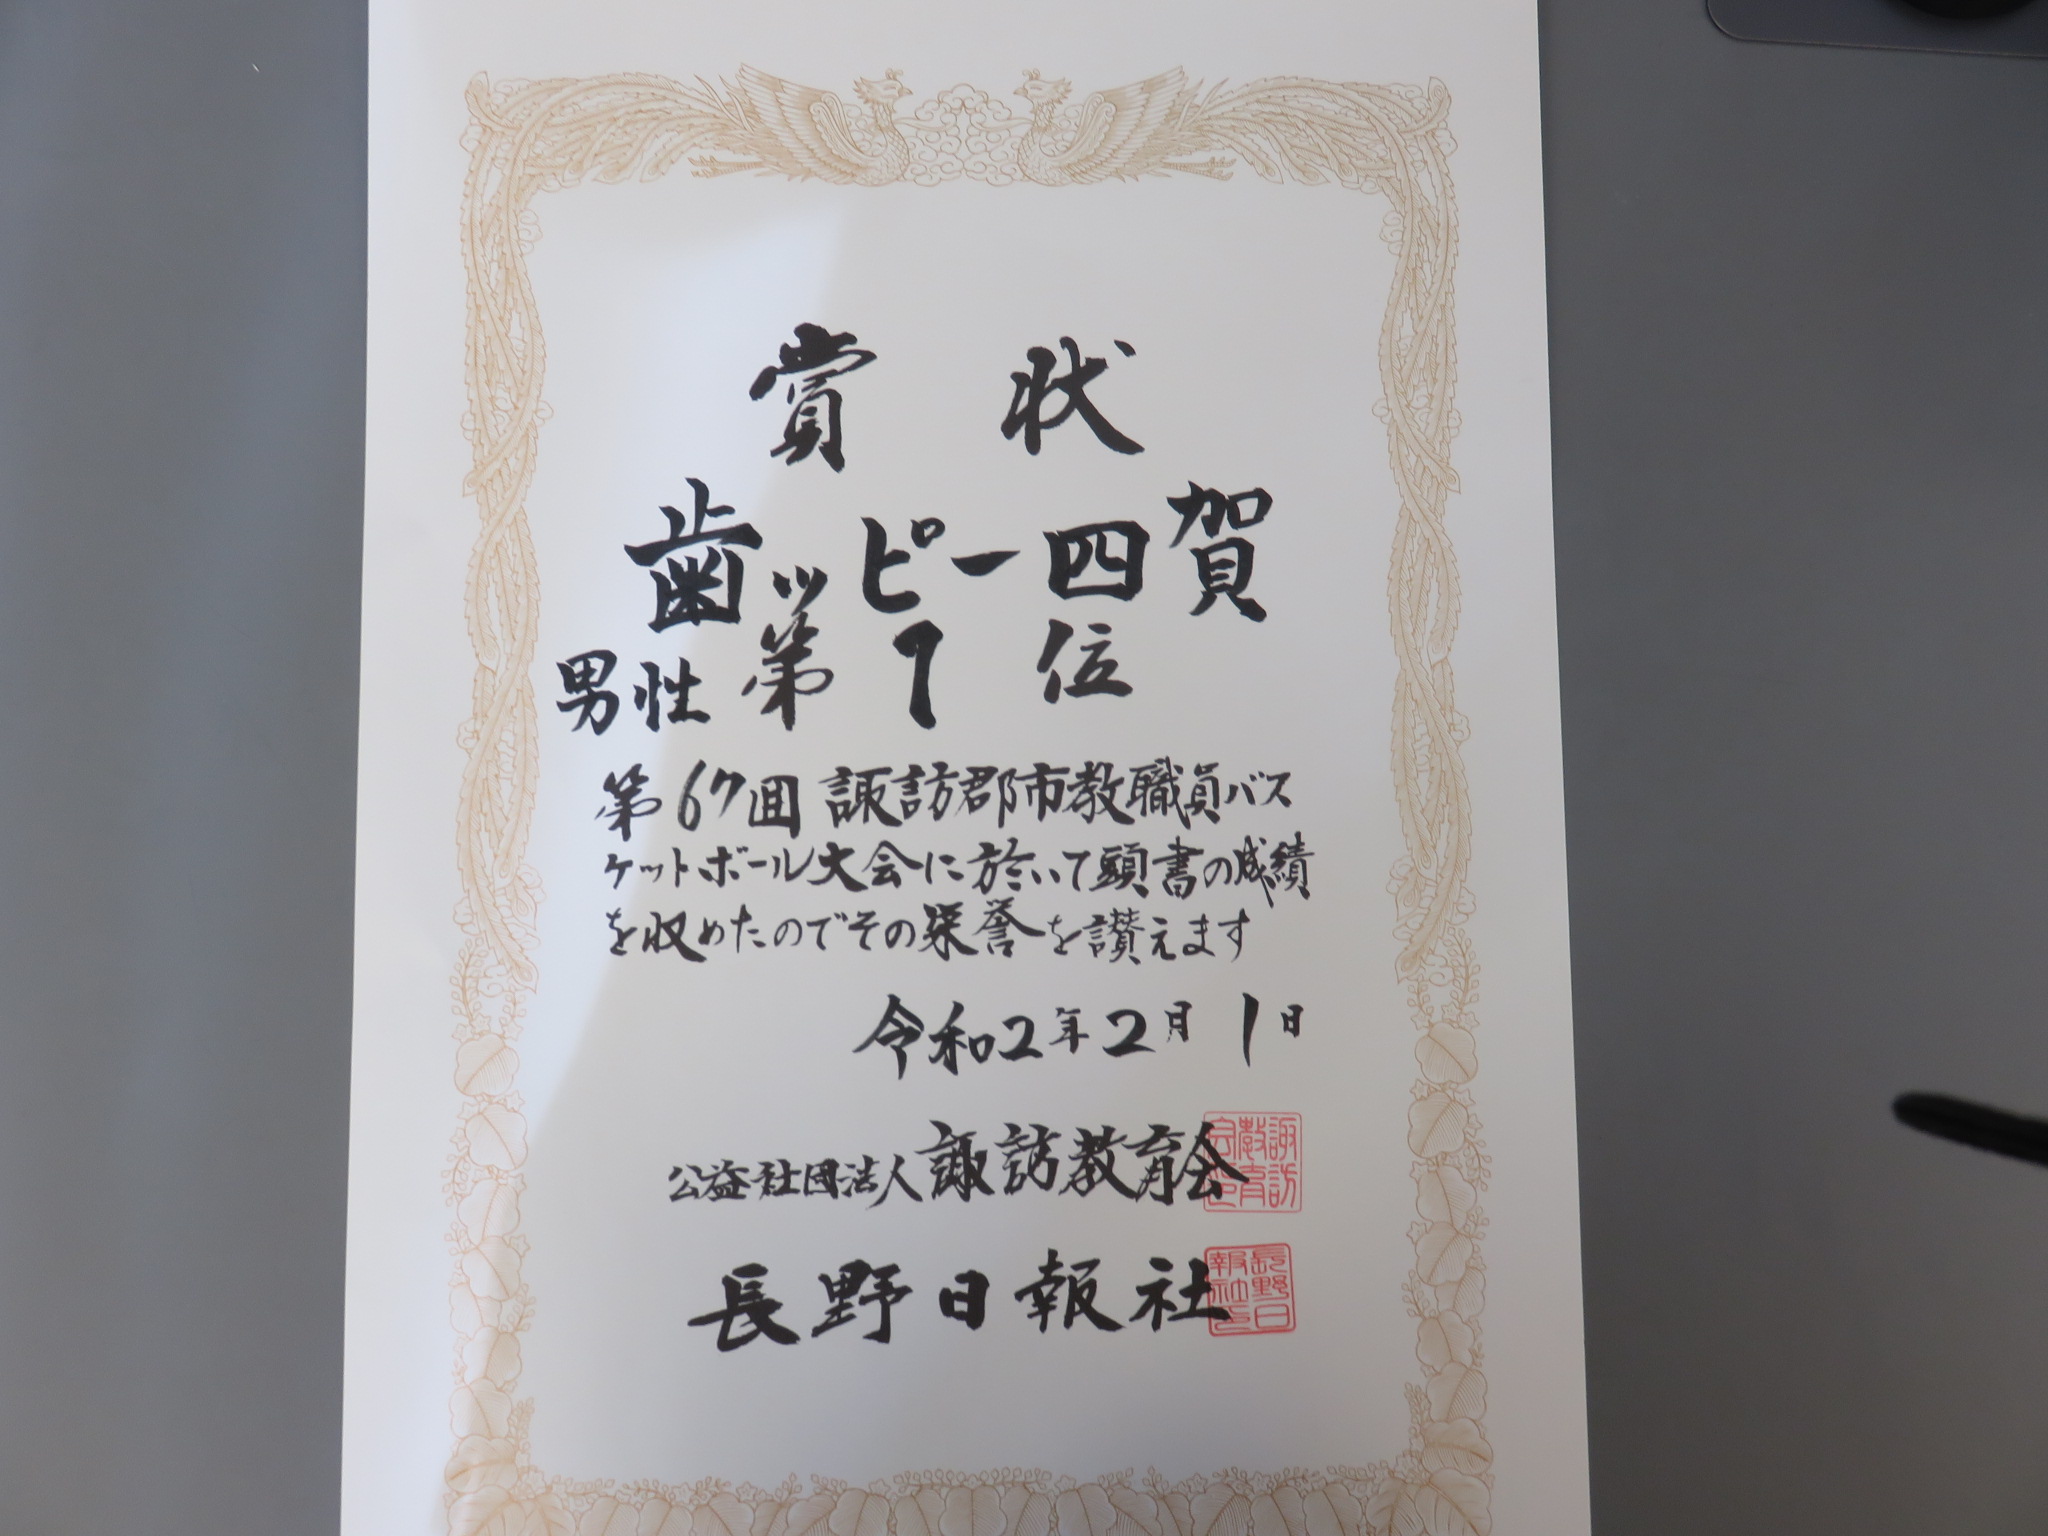 賞状
歯ッピー四賀
男性 第1位
第67回 諏訪郡市教職員バス
ケットボール大会に於いて頭書の成績
を収めたのでその栄誉を讃えます
令和2年2月1日
公益社団法人諏訪教育会
諏訪教育会印
長野日報社
長野日報社印